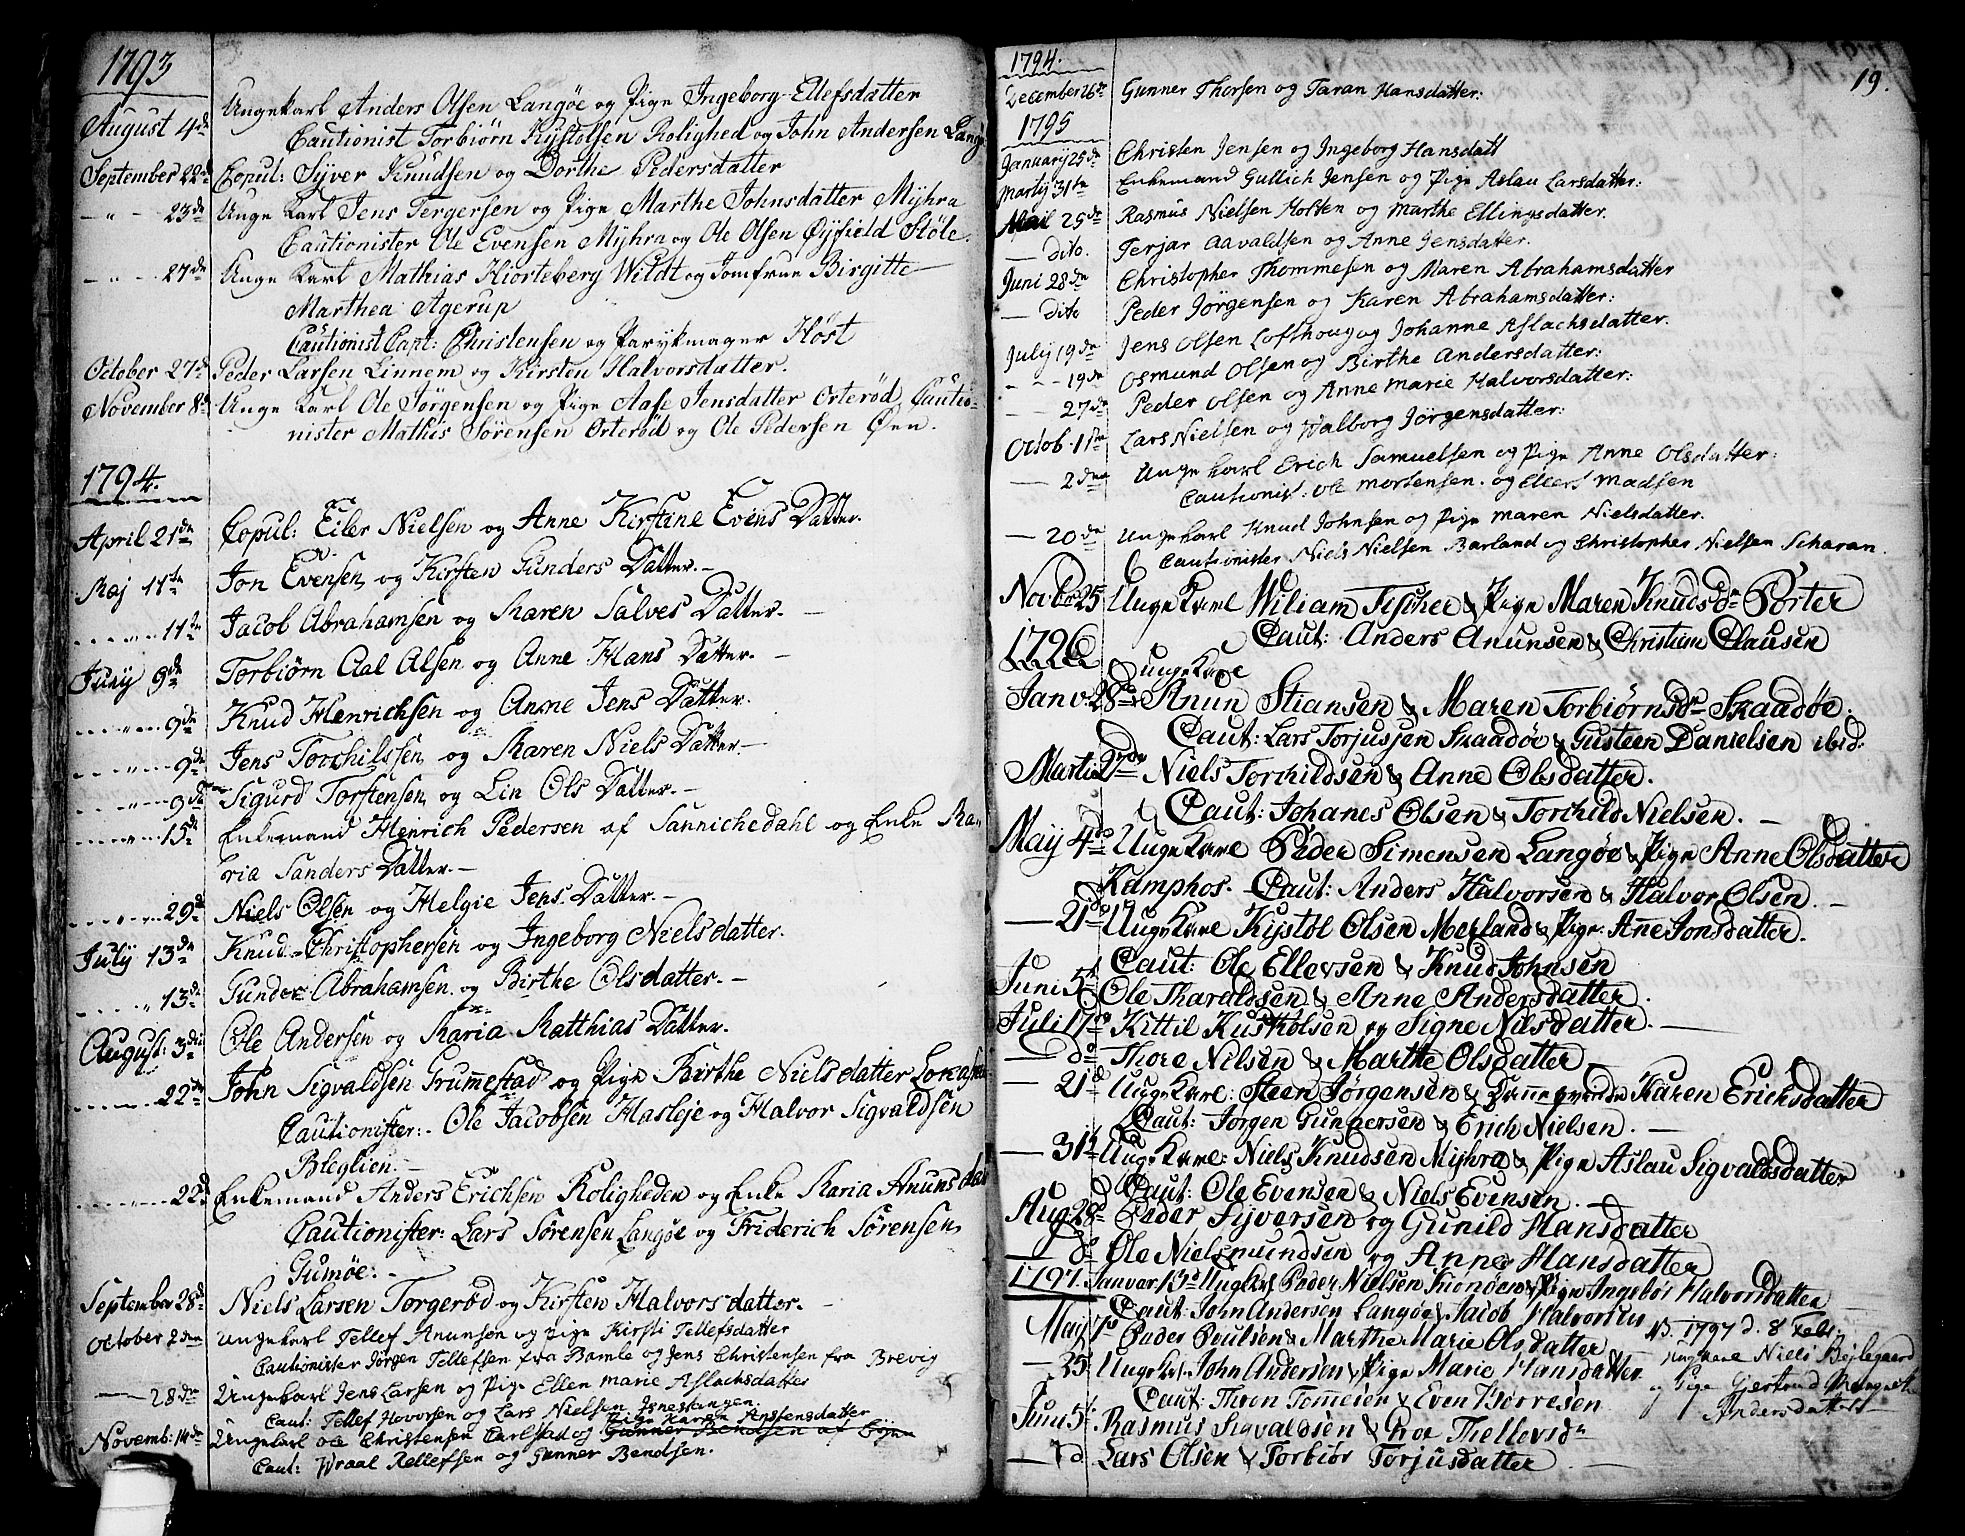 1793
August 4de Ungekarl Anders Olsen Langöe og Pige Ingeborg Ellefsdatter
Cautionist Torbiørn Kystolsen Rolighed og John Andersen Langöe
September 22de Copul: Syver Knudsen og Dorthe Pedersdatter
— " — 23de Unge Karl Jens Tergersen og Pige Marthe Johnsdatter Myhra
Cautionister Ole Evensen Myhra og Ole Olsen Øyfield Støle.
— " — 27de Unge Karl Mathias Hiorteberg Wildt og Jomfrue Birgitte
Marthea Agerup
Cautionist Capt: Christensen og Parykmager Höst
October 27de Peder Larsen Linnem og Kirsten Halvorsdatter.
November 8de Unge Karl Ole Jørgensen og Pige Aase Jensdatter Orteröd, Cautio-
nister Mathis Sörensen Orteröd og Ole Pedersen Øen.
1794.
April 21de Copul: Eiler Nielsen og Anne Kirstine Evens Datter.
Maj 11te Jon Evensen og Kirsten Gunders Datter.—
11te Jacob Abrahamsen og Maren Salves Datter. —
Juny 9de Torbiörn Aal Alsen og Anne Hans Datter. —
9de Knud Henrichsen og Anne Jens Datter.
9de Jens Torchilssen og Maren Niels Datter.—
9de Sigurd Torstensen og Lin Ols Datter.—
15de Enkemand Henrich Pedersen af Sannichedahl og Enke Ma-
ria Sanders Datter.—
29de Niels Olsen og Helgie Jens Datter.—
July 13de Knud Christophersen og Ingeborg Nielsdatter.
13de Gunder Abrahamsen og Birthe Olsdatter.—
August: 3die Ole Andersen og Maria Matthias Datter.
22de John Sigvaldsen Grummestad og Pige Birthe Nielsdatter
Cautionister:- Ole Jacobsen Hasleje og Halvor Sigvaldsen
Bleglien.—
22de Enkemand Anders Erichsen Roligheden og Enke Maria Anunsdat
Cautionister: Lars Sörensen Langöe og Friderich Sörensen
Gumöe.-
September 28de Niels Larsen Torgeröd og Kirsten Halvorsdatter.—
October 2den Ungekarl Tellef Anunsen og pige Kirsti Tellefsdatter
Cautionister Jörgen Tellefsen fra Bamle og Jens Christensen fra Brevig
— 28de Ungekarl Jens Larsen og Pige Ellen Marie Aslachsdatter
Caut: Tellef Hovorsen og Lars Nielsen Isnestangen
Pige Karen Anstensdatter
Novemb: 14de Ungekarl Ole Christensen Carlstad og Gunner Bendtsen af
Caut: Wraal Kellefsen og Gunner Bendtsen.
19.
1794.
December 26de Gunner Thorsen og Taran Hansdatter:
1795
January 25de Christen Jensen og Ingeborg Hansdatt
Martij 31te Enkemand Gullich Jensen og Pige Aslau Larsdatter:
April 25de Rasmus Nielsen Holten og Marthe Ellingsdatter.
— dito. Terjar Aavaldsen og Anne Jensdatter.
Juni 28de Christopher Thommesen og Maren Abrahamsdatter
— dito Peder Jörgensen og Karen Abrahamsdatter:
July 19de Jens Olsen Lofthoug og Johanne Aslachsdatter.
- - 19de Osmund Olsen og Birthe Andersdatter:
— 27de Peder Olsen og Anne Marie Halvorsdatter:
Octob. 1ste Lars Nielsen og Walborg Jörgensdatter:
— 2den Unge karl Erich Samuelsen og Pige Anne Olsdatter:
Cautionist: Ole Mortensen. og Ellers Madsen
— 20de Ungekarl Knud Johnsen og Pige Maren Nielsdatter.
Cautionister Niels Nielsen Barland og Christopher Nielsen Scharan.
Novbr 25 Unge Karl Wiliam Fischer & Pige Maren Knudsdr Porter
Caut: Anders Anunsen & Christian Clausen
1796
unge Karl
Janv. 28de Anun Stiansen & Maren Torbiörnsdr Skaadöe.
Caut: Lars Torjussen Skaadöe & Gusteen Danielsen ibid:
Martii 27de Niels Torchildsen & Anne Olsdatter.
Caut: Johanes Olsen & Torchild Nielsen. —
May 4de Unge Karl Peder Simensen Langöe & Pige Anne Olsdatter
Kamphos. Caut: Anders Halvorsen & Halvor Olsen. —
— 21de Unge Karl Kystol Olsen Merland & Pige Ane Jonsdatter.
Caut: Ole Ellevsen & Knud Johnsen
Juni 5te Ole Tharaldsen & Anne Andersdatter.
Juli 17de Kittil Kustholsen og Signe Nilsdatter. —
— do Thore Nilsen & Marthe Olsdatter —
— 21de Unge Karl: Steen Jörgensen & Karen Erichsdatter
Caut: Jorgen Gundersen & Erich Nielsen. —
— 31te Unge Karl: Niels Knudsen Myhra & Pige Aslau Sigvaldsdatter
Caut: Ole Evensen & Niels Evensen. —
Aug 28de Peder Syversen og Gunild Hansdatter
— do Ole Nielsmundsen og Anne Hansdatter
1797. Janvar 13de Ung Karl Peder Nielsen & Pige Ingebör Halvorsdatter
Caut: John Andersen Langöe & Jacob Halvorsen
May 7de Peder Poulsen & Marthe Marie Olsdatter
NB. 1797 d. 8 Febr.
Ung Karl Niels Bejlegaard
og Pige Giertrud Margret
Andersdatter
— 25 Unge Karl John Andersen & Pige Marie Hansdatter
Caut: Thron Tomesön & Even Börresön
Juni 5te Rasmus Sigvaldsön & Thellevsdr
— do Lars Olsen & Torbiör Torjusdatter